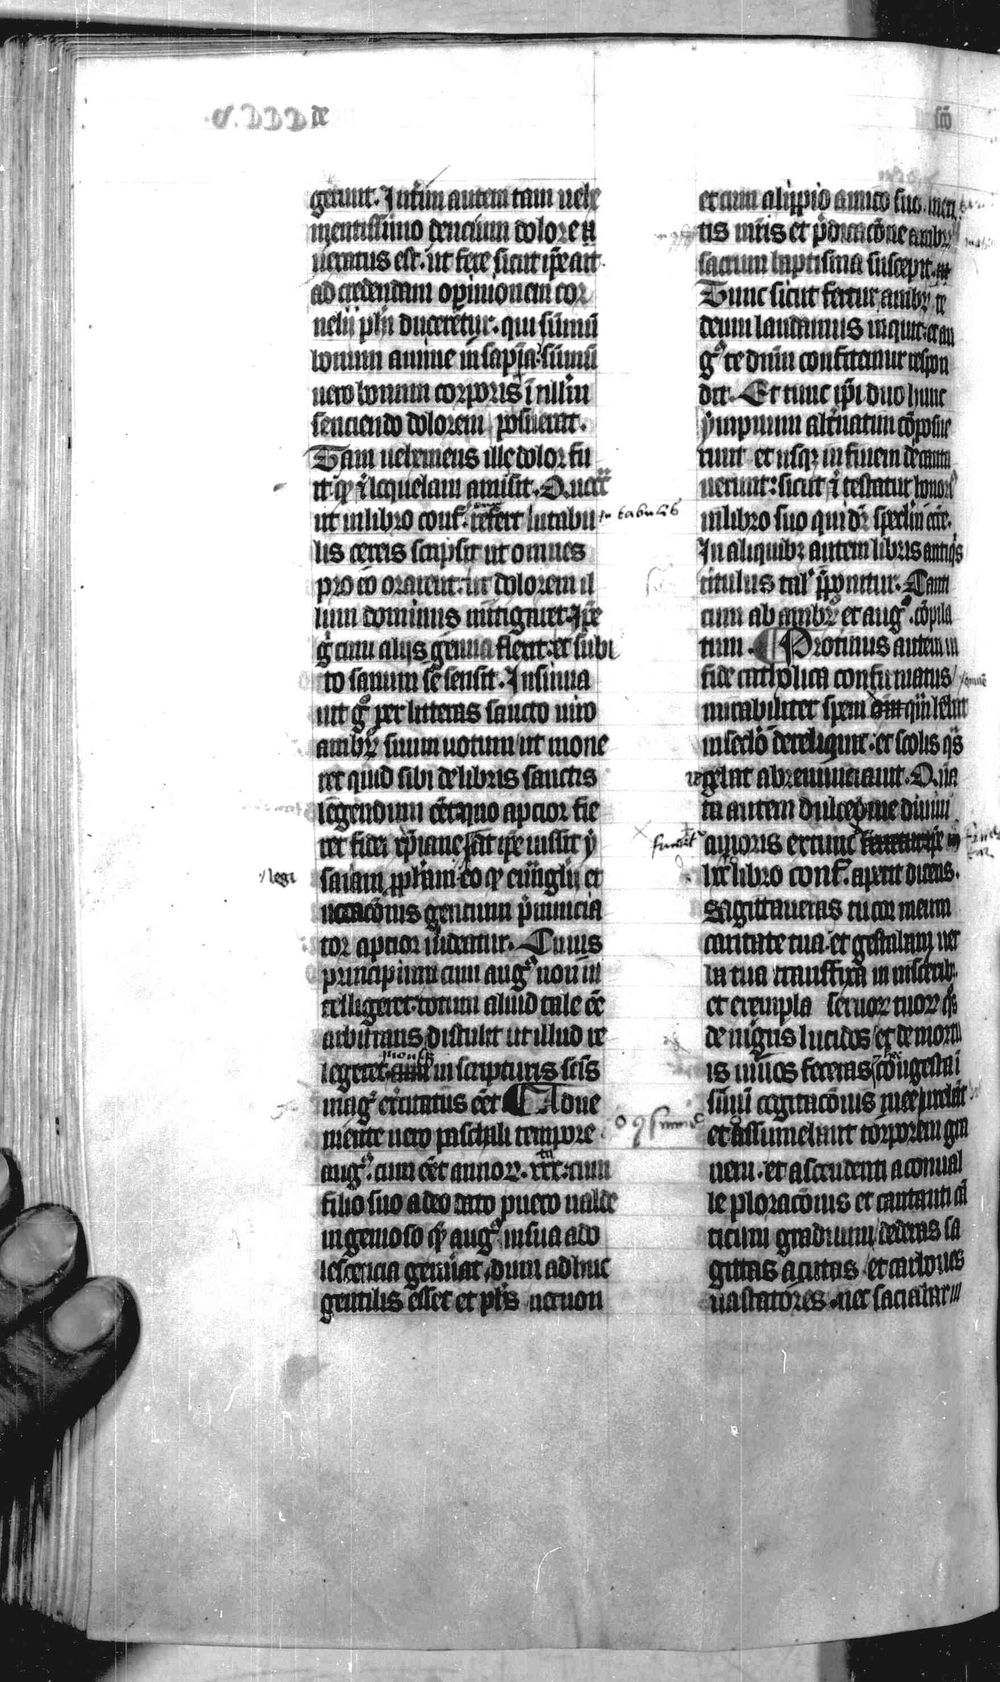 de
sco
gerunt. Interim autem tam uehe
mentissimo dencium dolore
uexatus est. ut fere sicut ipe ait
ad credendam opinionem cor
nelij phi duceretur. qui sūmū
bonum anime in sapīa. sūmū
uero bonum corporis ī nullū
senciendo dolorem posuerat.
Tam uehemens ille dolor fu
it qꝫ ⁊ loquelam amisit. Unde
ut in libro conf. refert in tabu
in tabulis
lis cereis scripsit ut omnes
pro eo orarent. ut dolorem il
lum dominus mitigaret. Ipe
gͦ cum alijs genua flexit. et subi
to sanum se sensit. Insinua
uit gͦ per litteras sancto uiro
ambrͦ suum uotum ut mone
ret quid sibi de libris sanctis
legendum eēt. quo apcior fie
ret fidei xp̄iane. At ipe iussit y
saiam ꝓphām eo qꝫ euāglij et
legi
uocacōnis gencium p̄nuncia
tor apcior uideatur. Cuius
principium cum augͦ non in
telligeret. totum aliud tale eē
arbitrans distulit ut illud re
legeret in scripturis scīs
magͣ exercitatus eēt Adue
niente uero paschali tempore
augͦ. cum eēt annoꝝ. xxx. cum
filio suo adeo dato puero ualde
ingenioso qͥ augͦ in sua ado
lescencia genuāt dum adhuc
gentilis esset et phs necnon
et cum alippio amico suo. meri
tis mr̄is et p̄dicacōne ambrͦ
sacrum baptisma suscepit.
Tunc sicut fertur ambrͦ te
deum laudamus inquit. et au
gͦ te dn̄m confitemur respon
dit. Et tunc ipi duo hunc
ympnum altnatim cōposue
runt et usqꝫ in finem decanta
uerunt: sicut ⁊ testatur honorͦ
in libro suo qui dr̄ speclm eccͤ.
In aliquibꝫ autem libris antiqͥs
titulus talͥ p̄ponitur. Canti
cum ab ambrͦ et augͦ. cōpila
tum. Protinus autem in
fide catholica confirmatus
mirabiliter spem quā hēbat
in seclō dereliquit. et scolis qͣs
regebat abrenunciauit. Quā
ta autem dulcedine diuini
amoris extunc
libro conf. aperit dicens.
Sagittaueras tu cor meum
caritate tua. et gestabam uer
ba tua transfixa in uisceribꝫ
et exempla seruoꝝ tuoꝝ qͦs
de nigris lucidos et de mortu
is uiuos feceras congesta ī
sinū cogitacōnis mee
et assumebant torporem gra
uem. et ascendenti a conual
le ploracōnis et cantanti cā
ticum graduum dederas sa
gittas acutas et carbones
uastatores. nec saciabar in